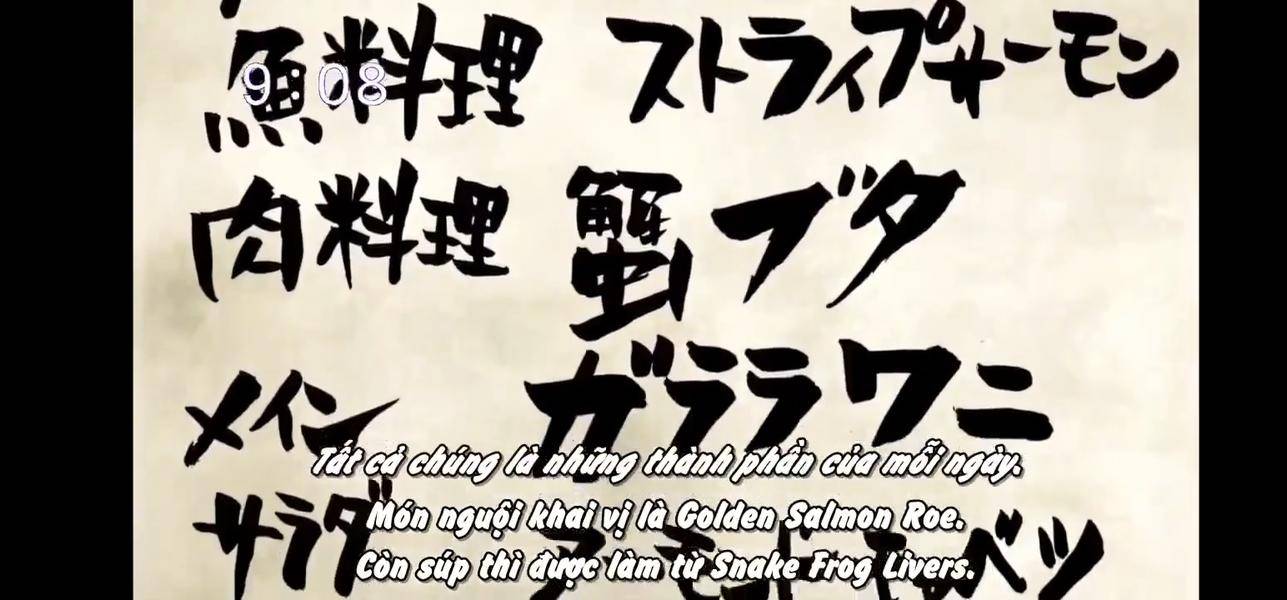 9:08
魚料理 ストライプサーモン
肉料理 蟹ブタ
メイン ガララワニ
サラダ アーモンドキャベツ
Tất cả chúng là những thành phần của mỗi ngày.
Món nguội khai vị là Golden Salmon Roe.
Còn súp thì được làm từ Snake Frog Livers.